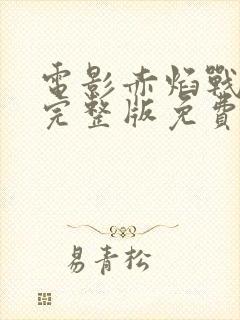 電影赤焰戰
完整版免費
易青松